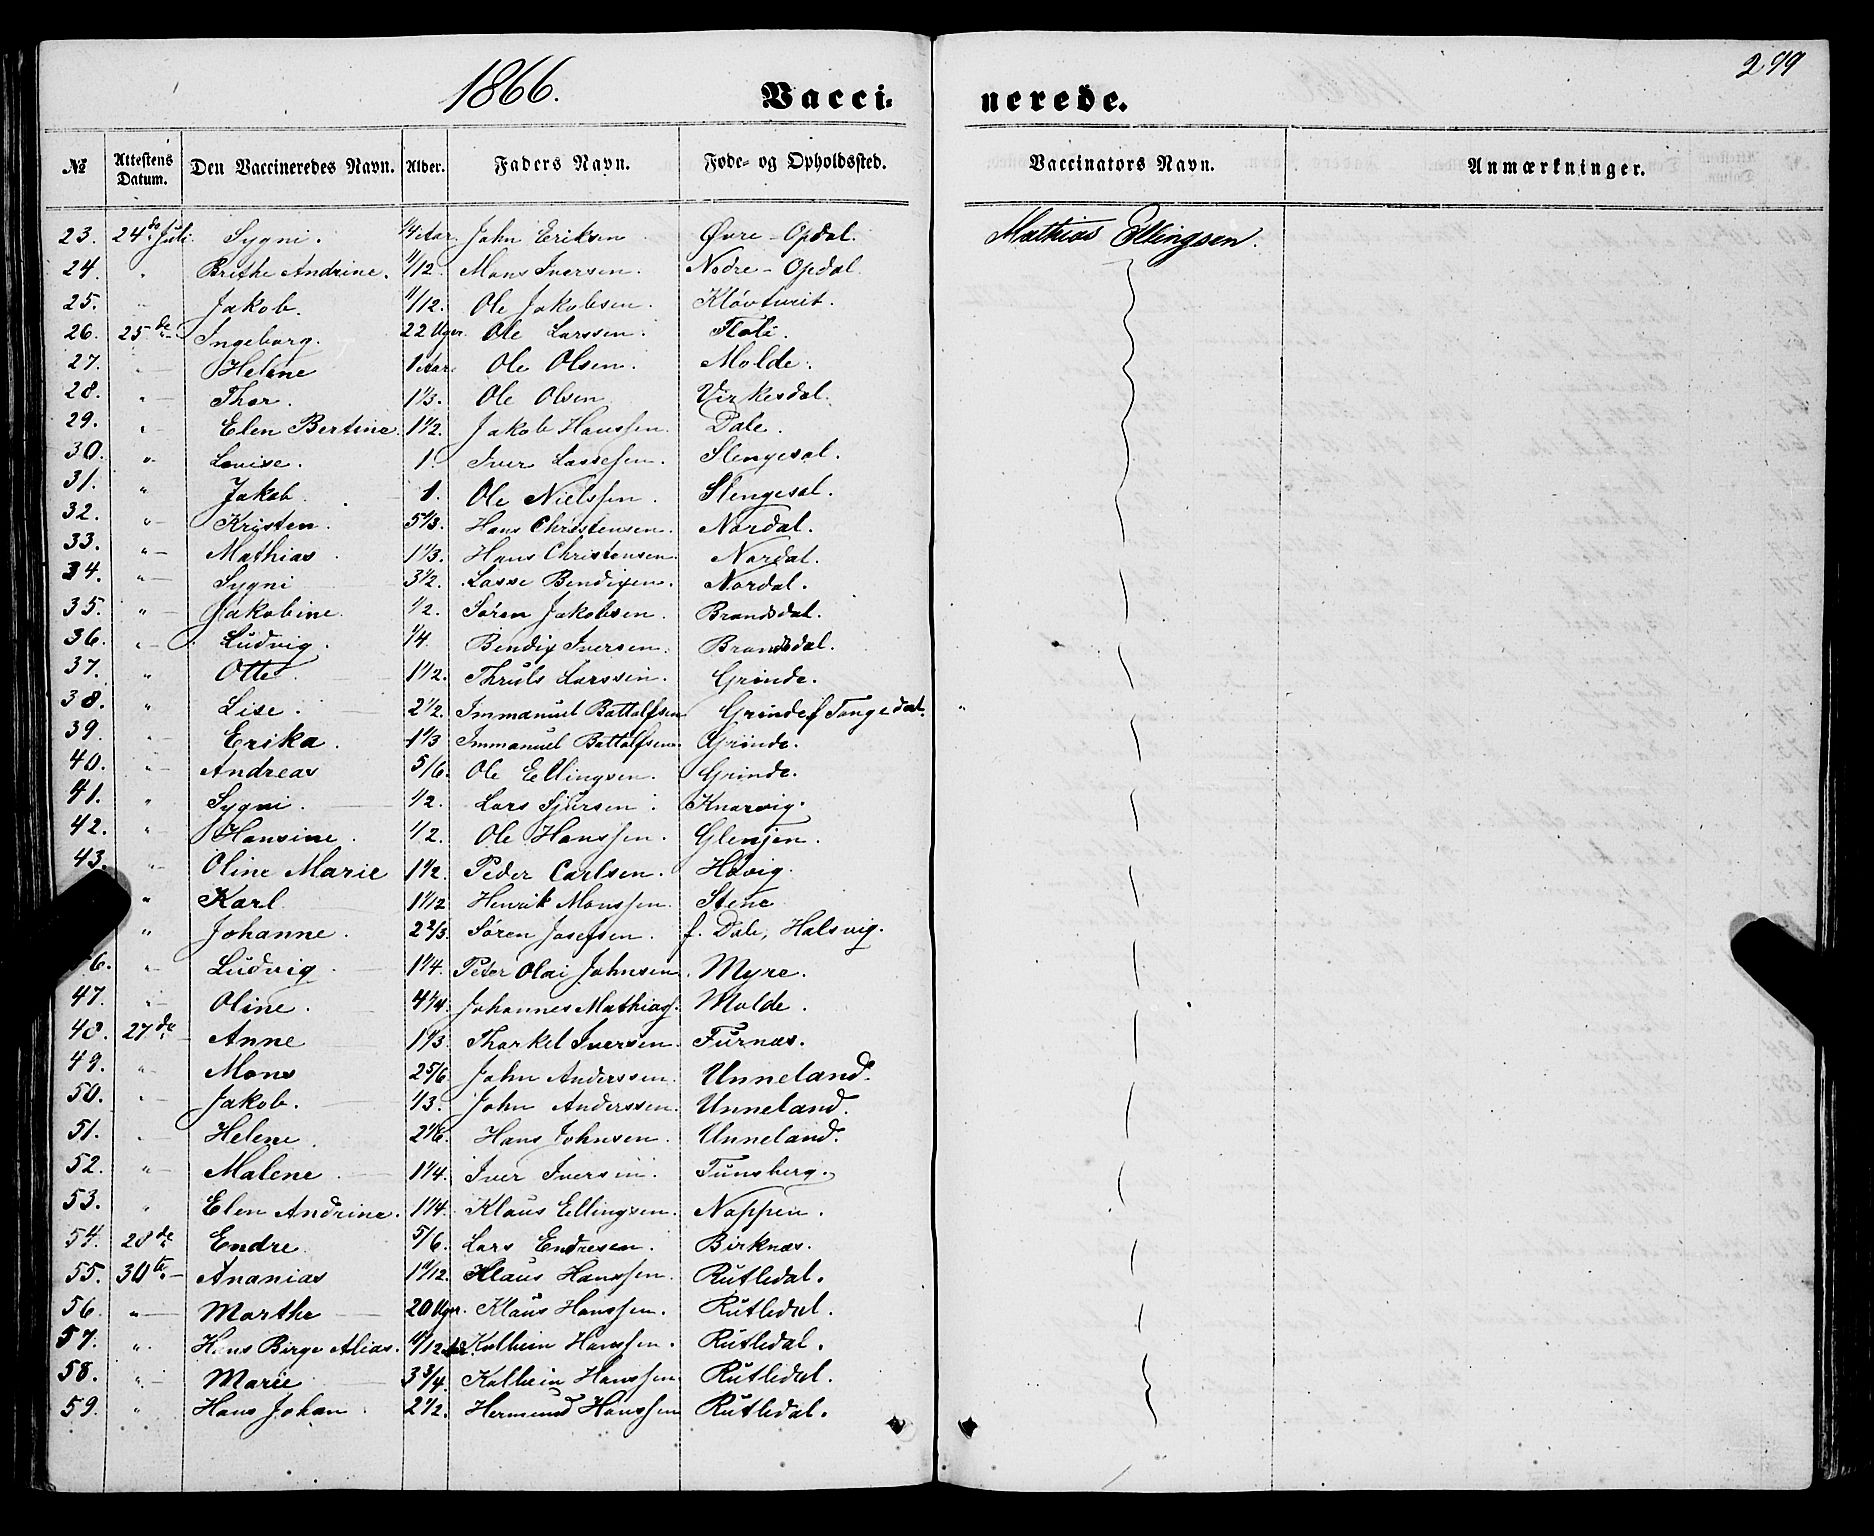 1866.
299
Vacci-
nerede.
№ Attestens Datum. Den Vaccineredes Navn. Alder. Faders Navn. Føde- og Opholdssted. Vaccinators Navn. Anmærkninger.
23. 24de Juli Sygni. John Eriksen Øvre-Opdal. Mathias Ellingsen.
24. " Brithe Andrine. Mons Iversen. Nedre-Opdal.
25. " Jakob. 11/12. Ole Jakobsen.
26. 25de Ingeborg. 22 Uger. Ole Larssen. Floli.
27. " Helene 1 Aar. Ole Olsen. Molde.
28. " Thor. 1 1/3. Ole Olsen Virkesdal.
29. " Elen Bertine. 1 1/2. Jakob Hanssen. Dale.
30. " Lovise. 1. Iver Lassesen. Slengesol.
31. " Jakob. 1. Ole Nielssen. Slengesol.
32. " Kristen. 5 1/3. Hans Christensen. Nordal.
33. " Mathias. 1 1/3. Hans Christensen. Nordal.
34. " Sygni 3 1/2. Lasse Bendixen. Nordal.
35. " Jakobine. 1/2. Søren Jakobsen. Brandsdal.
36. " Ludvig. 1/4. Bendix Iversen. Brandsdal.
37. " Otte. 1 1/2. Thruls Larssen. Grinde.
38. " Lise. 2 1/2. Immanuel Battolfsen Grinde f. Tangedal.
39. " Erika. 1 1/3 Immanuel Battolfsen. Grinde.
40. " Andreas 5/6. Ole Ellingsen. Grinde.
41. " Sygni. 1/2. Lars Sjursen. Knarvig.
42. " Hansine. 1/2. Ole Hanssen. Glenjen.
43. " Oline Marie 1 1/2. Peder Carlsen. Håvig.
" Karl 1 1/12 Henrik Monssen. Stene
" Johanne. 2 2/3. Søren Josefsen. f. Dale, Halsvig.
6. " Ludvig. 1 1/4. Peter Olai Johnsen. Myre.
47. " Oline. 4 1/4. Johannes Mathias. Molde.
48. 27de Anne 1 1/3. Thorkel Iversen. Furnæs.
49. " Mons 2 5/6. John Anderssen. Unneland.
50. " Jakob. 1/3. John Anderssen. Unneland.
51. " Helene. 2 1/6. Hans Johnsen. Unneland.
52. " Malene. 1 1/4. Iver Iversen. Tunsberg.
53. " Elen Andrine. 1 1/4. Klaus Ellingsen. Nappen.
54. 28de Endre 5/6. Lars Endresen. Birknæs.
55. 30te. Ananias Klaus Hanssen. Rutledal.
56. " Marthe 20 Uger. Klaus Hanssen. Rutledal.
57. " Hans Birge Alias. Kolbein Hanssen. Rutledal.
58. " Marie 3 3/4. Kolbein Hanssen Rutledal.
59. " Hans Johan 2 1/2. Hermund Hanssen Rutledal.